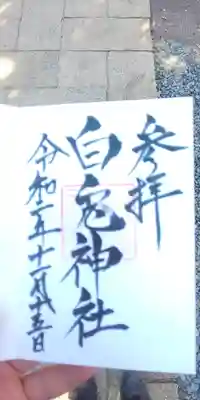 参拝
白兎神社
令和五年十一月廿五日